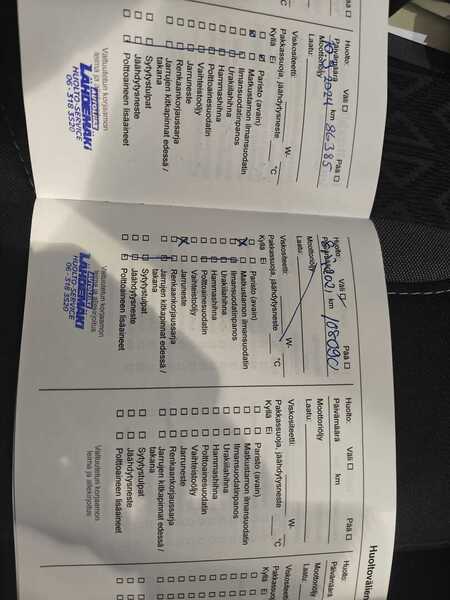 Huolto: Väli □ Pää □
Päivämäärä 2024 km 86385
Moottoriöljy
Laatu: W-
Viskositeetti:
Pakkassuoja, jäähdytysneste °C
Kyllä Ei
Paristo (avain)
Matkustamon ilmansuodatin
Ilmansuodatinpanos
Urakiilahihna
Hammashihna
Polttoainesuodatin
Vaihteistoöljy
Jarruneste
Renkaankorjaussarja
Jarrujen kitkapinnat edessä /
takana
Sytytystulpat
Jäähdytysneste
Polttoaineen lisäaineet
Valtuutetun korjaamon
leima ja
LÄHDEMÄKI
HUOLTO-SERVICE
06-518 3520
Huolto: Väli □ Pää □
km 108090
Moottoriöljy
Laatu: W-
Viskositeetti:
Pakkassuoja, jäähdytysneste °C
Kyllä Ei
Paristo (avain)
Matkustamon ilmansuodatin
Ilmansuodatinpanos
Urakiilahihna
Hammashihna
Polttoainesuodatin
Vaihteistoöljy
Jarruneste
Renkaankorjaussarja
Jarrujen kitkapinnat edessä /
takana
Sytytystulpat
Jäähdytysneste
Polttoaineen lisäaineet
Valtuutetun korjaamon
leima ja allekirjoitus
LÄHDEMÄKI
HUOLTO-SERVICE
06-518 3520
Huolto: Väli □ Pää □
Päivämäärä km
Moottoriöljy
Laatu: W-
Viskositeetti:
Pakkassuoja, jäähdytysneste °C
Kyllä Ei
Paristo (avain)
Matkustamon ilmansuodatin
Ilmansuodatinpanos
Urakiilahihna
Hammashihna
Polttoainesuodatin
Vaihteistoöljy
Jarruneste
Renkaankorjaussarja
Jarrujen kitkapinnat edessä /
takana
Sytytystulpat
Jäähdytysneste
Polttoaineen lisäaineet
Valtuutetun korjaamon
leima ja allekirjoitus
Huolto:
Päivämäärä
Moottoriöljy
Laatu:
Viskositeetti:
Pakkassuoja
Kyllä Ei